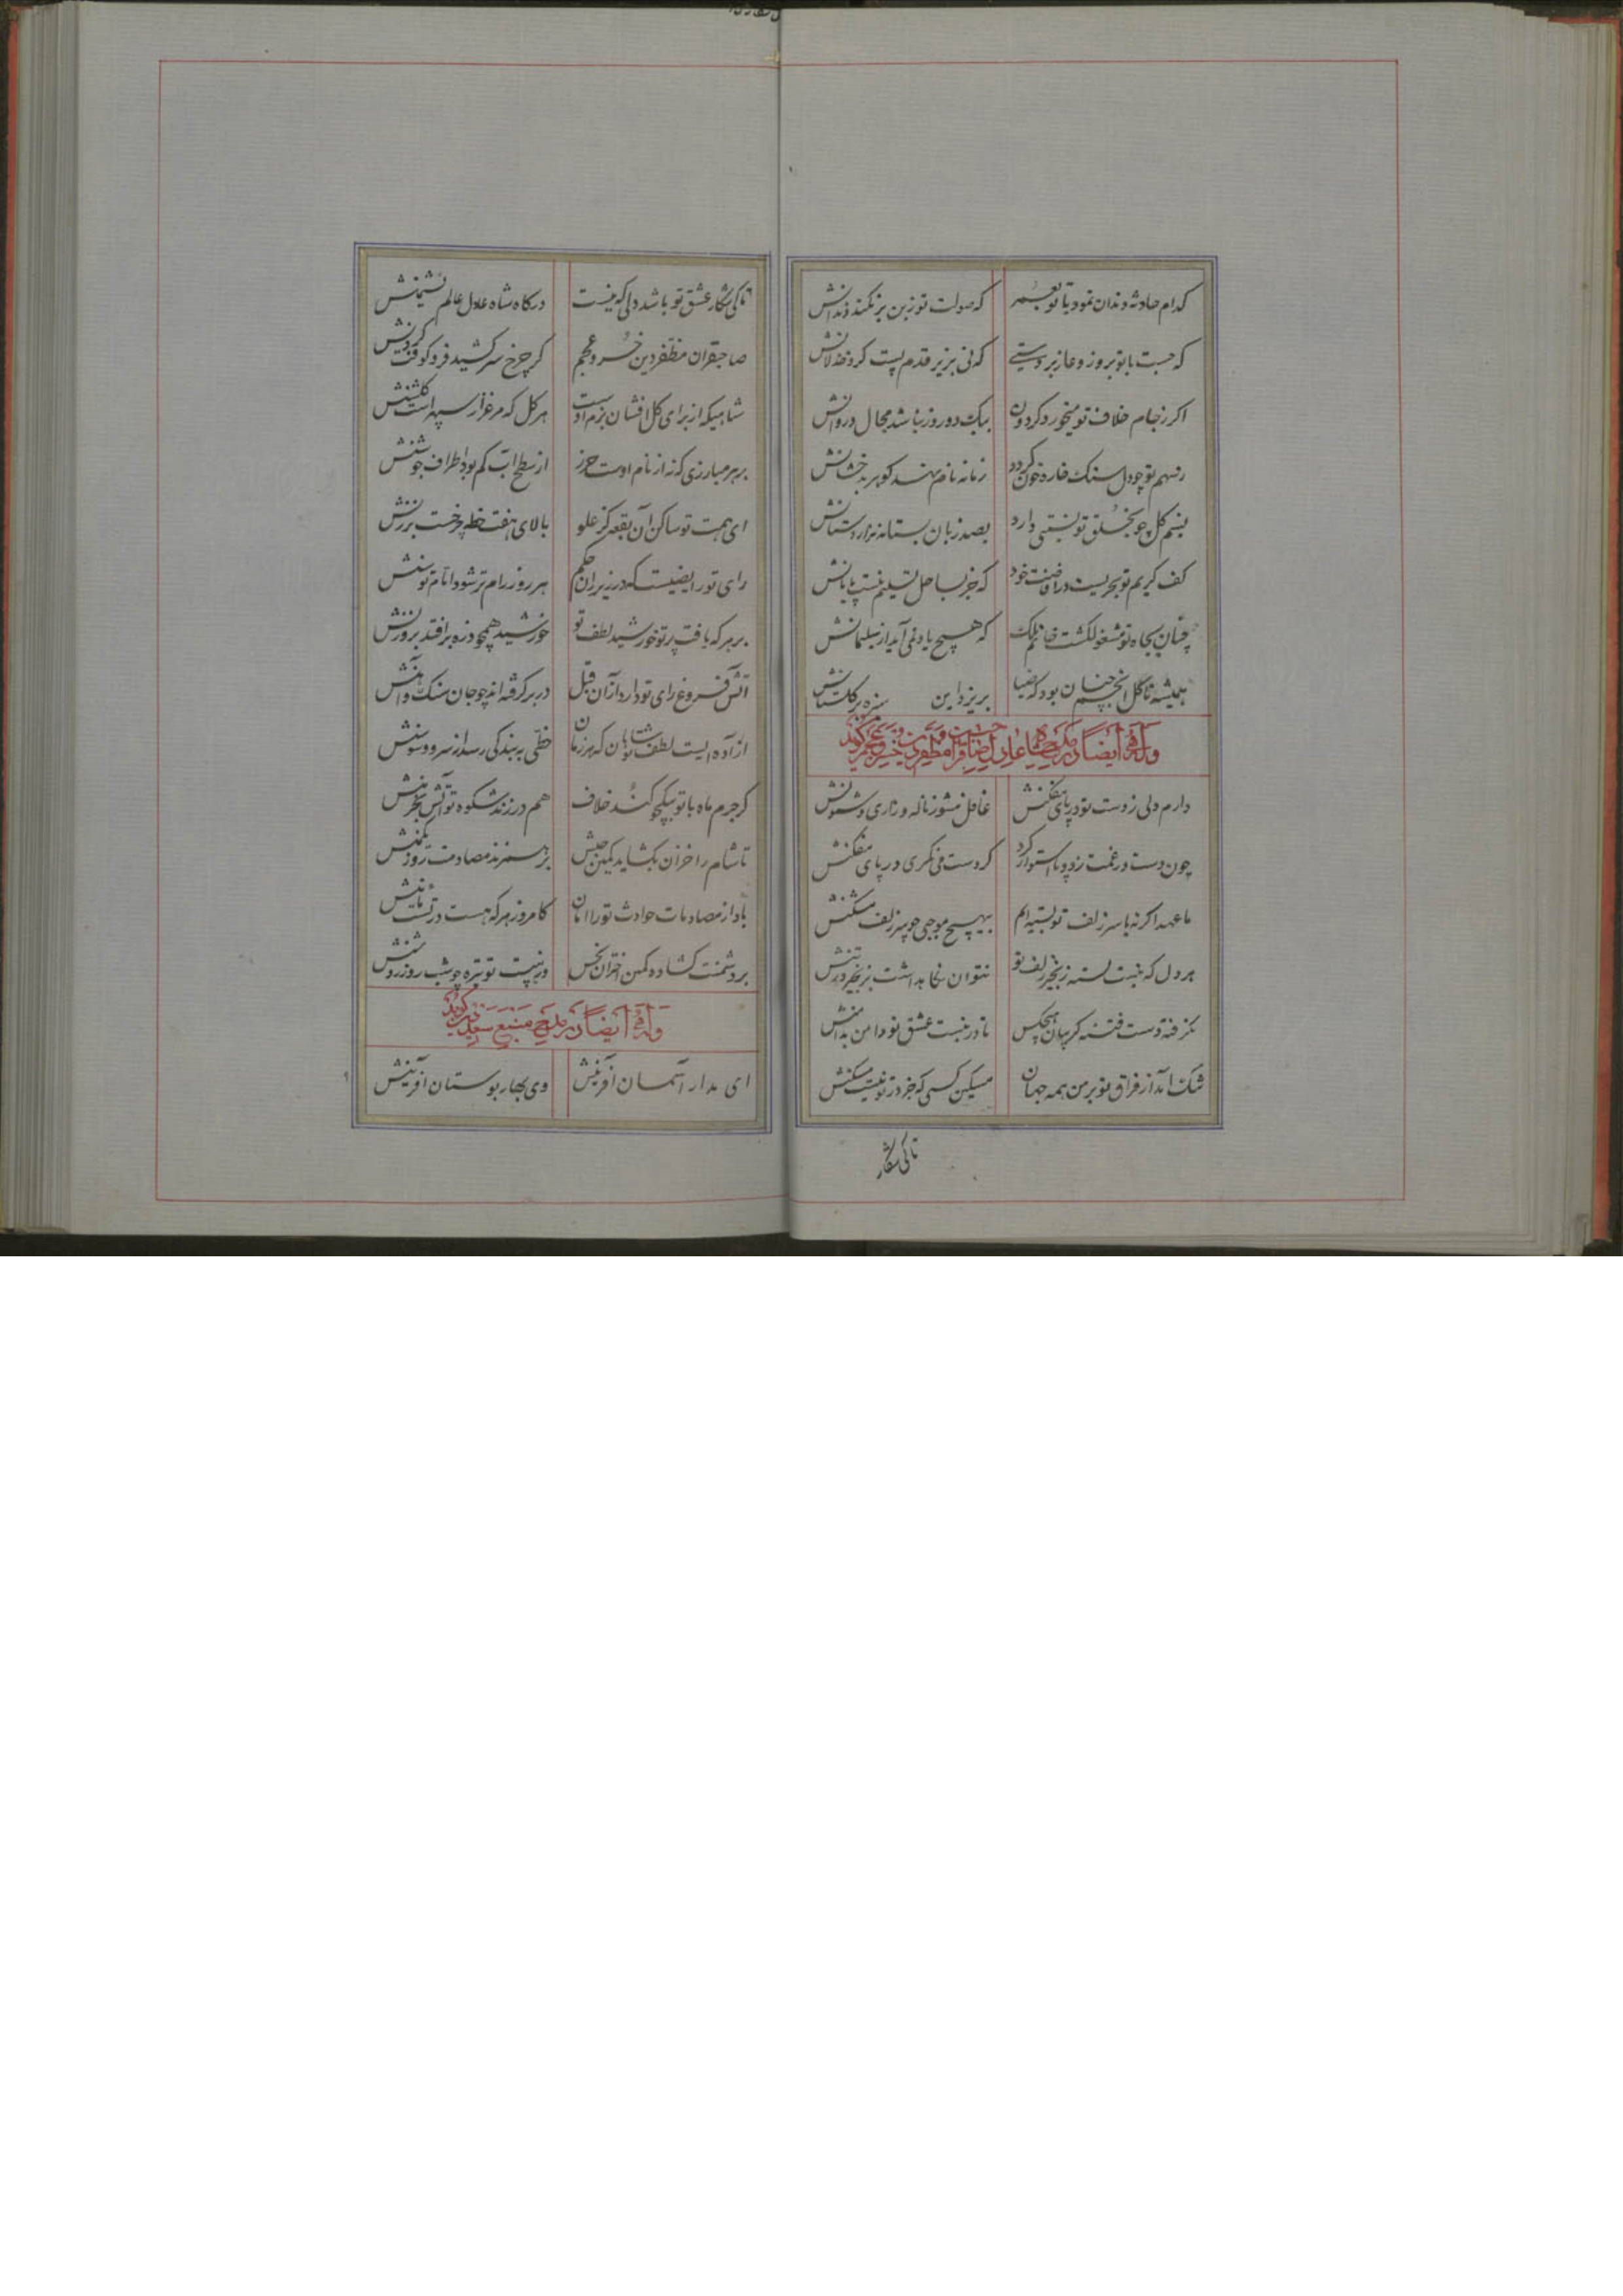 کدام حادثه دندان نمود با تو بعمر که صولت تو ز بن بر نکند دندانش
که جست با تو بروز وغا زبردستی که نی بزیر قدم پست کرد خذلانش
اگر ز جام خلاف تو میخورد گردون بیک دو روز نباشد مجال دورانش
ز سهم تو چو دل سنک خاره خون گردد زمانه نام نهد گوهر بدخشانش
نسیم گل چو بخلق تو نسبتی دارد بصد زبان بستاند هزاردستانش
کف کریم تو بحریست در افاضت خود که جز بساحل تسلیم نیست پایانش
چنان بجاه تو مشغول گشت خاتم ملک که هیچ یاد نمی آید از سلیمانش
همیشه تا گل انجم چنان بود که ضیا بریزد این سبزه بر گلستانش
وله ایضا در مدح صاحبقران مظفر دین خسرو عجم گوید
دارم دلی ز دست تو در پای مفکنش غافل مشو ز ناله و زاری و شیونش
چون دست در غمت زد و پا استوار کرد گر دست می نگیری در پای مفکنش
ما عهدها که با سر زلف تو بسته ایم بهیچ موجبی چو سر زلف مشکنش
هر دل که نیست بسته زنجیر زلف تو نتوان نگاهداشت بزنجیر در تنش
نگرفته دست فتنه گریبان هیچکس تا در نبست عشق تو دامن بدامنش
تنک آمد از فراق تو بر من همه جهان مسکین کسی که جز در تو نیست مسکنش
تا کی شکار
تا کی شکار عشق تو باشد دلی که نیست درگاه شاه عادل عالم نشیمنش
صاحبقران مظفر دین خسرو عجم کز چرخ سر کشید فرو کوفت گردنش
شاهیکه از برای گل افشان بزم اوست هر گل که مرغزار سپهر است گلشنش
بر هر مبارزی که نه از نام اوست حرز از سطح آب کم بود اطراف جوشنش
ای همت تو ساکن آن بقعه کز علو بالای هفت خطه چرخست برزنش
رای تو رایضیست که در زیر ران حکم هر روز رام تر شود ایام توسنش
بر هر که یافت پرتو خورشید لطف تو خورشید همچو ذره برافتد بروزنش
آتش فروغ رای تو دارد از آن قبل در بر گرفته اند چو جان سنک و آهنش
آزاده ایست لطف تو شاها که هر زمان خطی به بندگی رسد از سرو و سوسنش
گر جرم ماه با تو بیکجو کند خلاف هم در زند شکوه تو آتش بخرمنش
تا شام را خزان بکشاید کمین جیش بر سر زند مصادمت روز بهمنش
بادا از مصادمات حوادث تو را امان کامروز هر که هست در تست مأمنش
بر دشمنت گشاده کمین اختران نحس وز هیبت تو تیره چو شب روز روشنش
وله ایضا در مدح گوید
ای مدار آسمان آفرینش وی بهار بوستان آفرینش